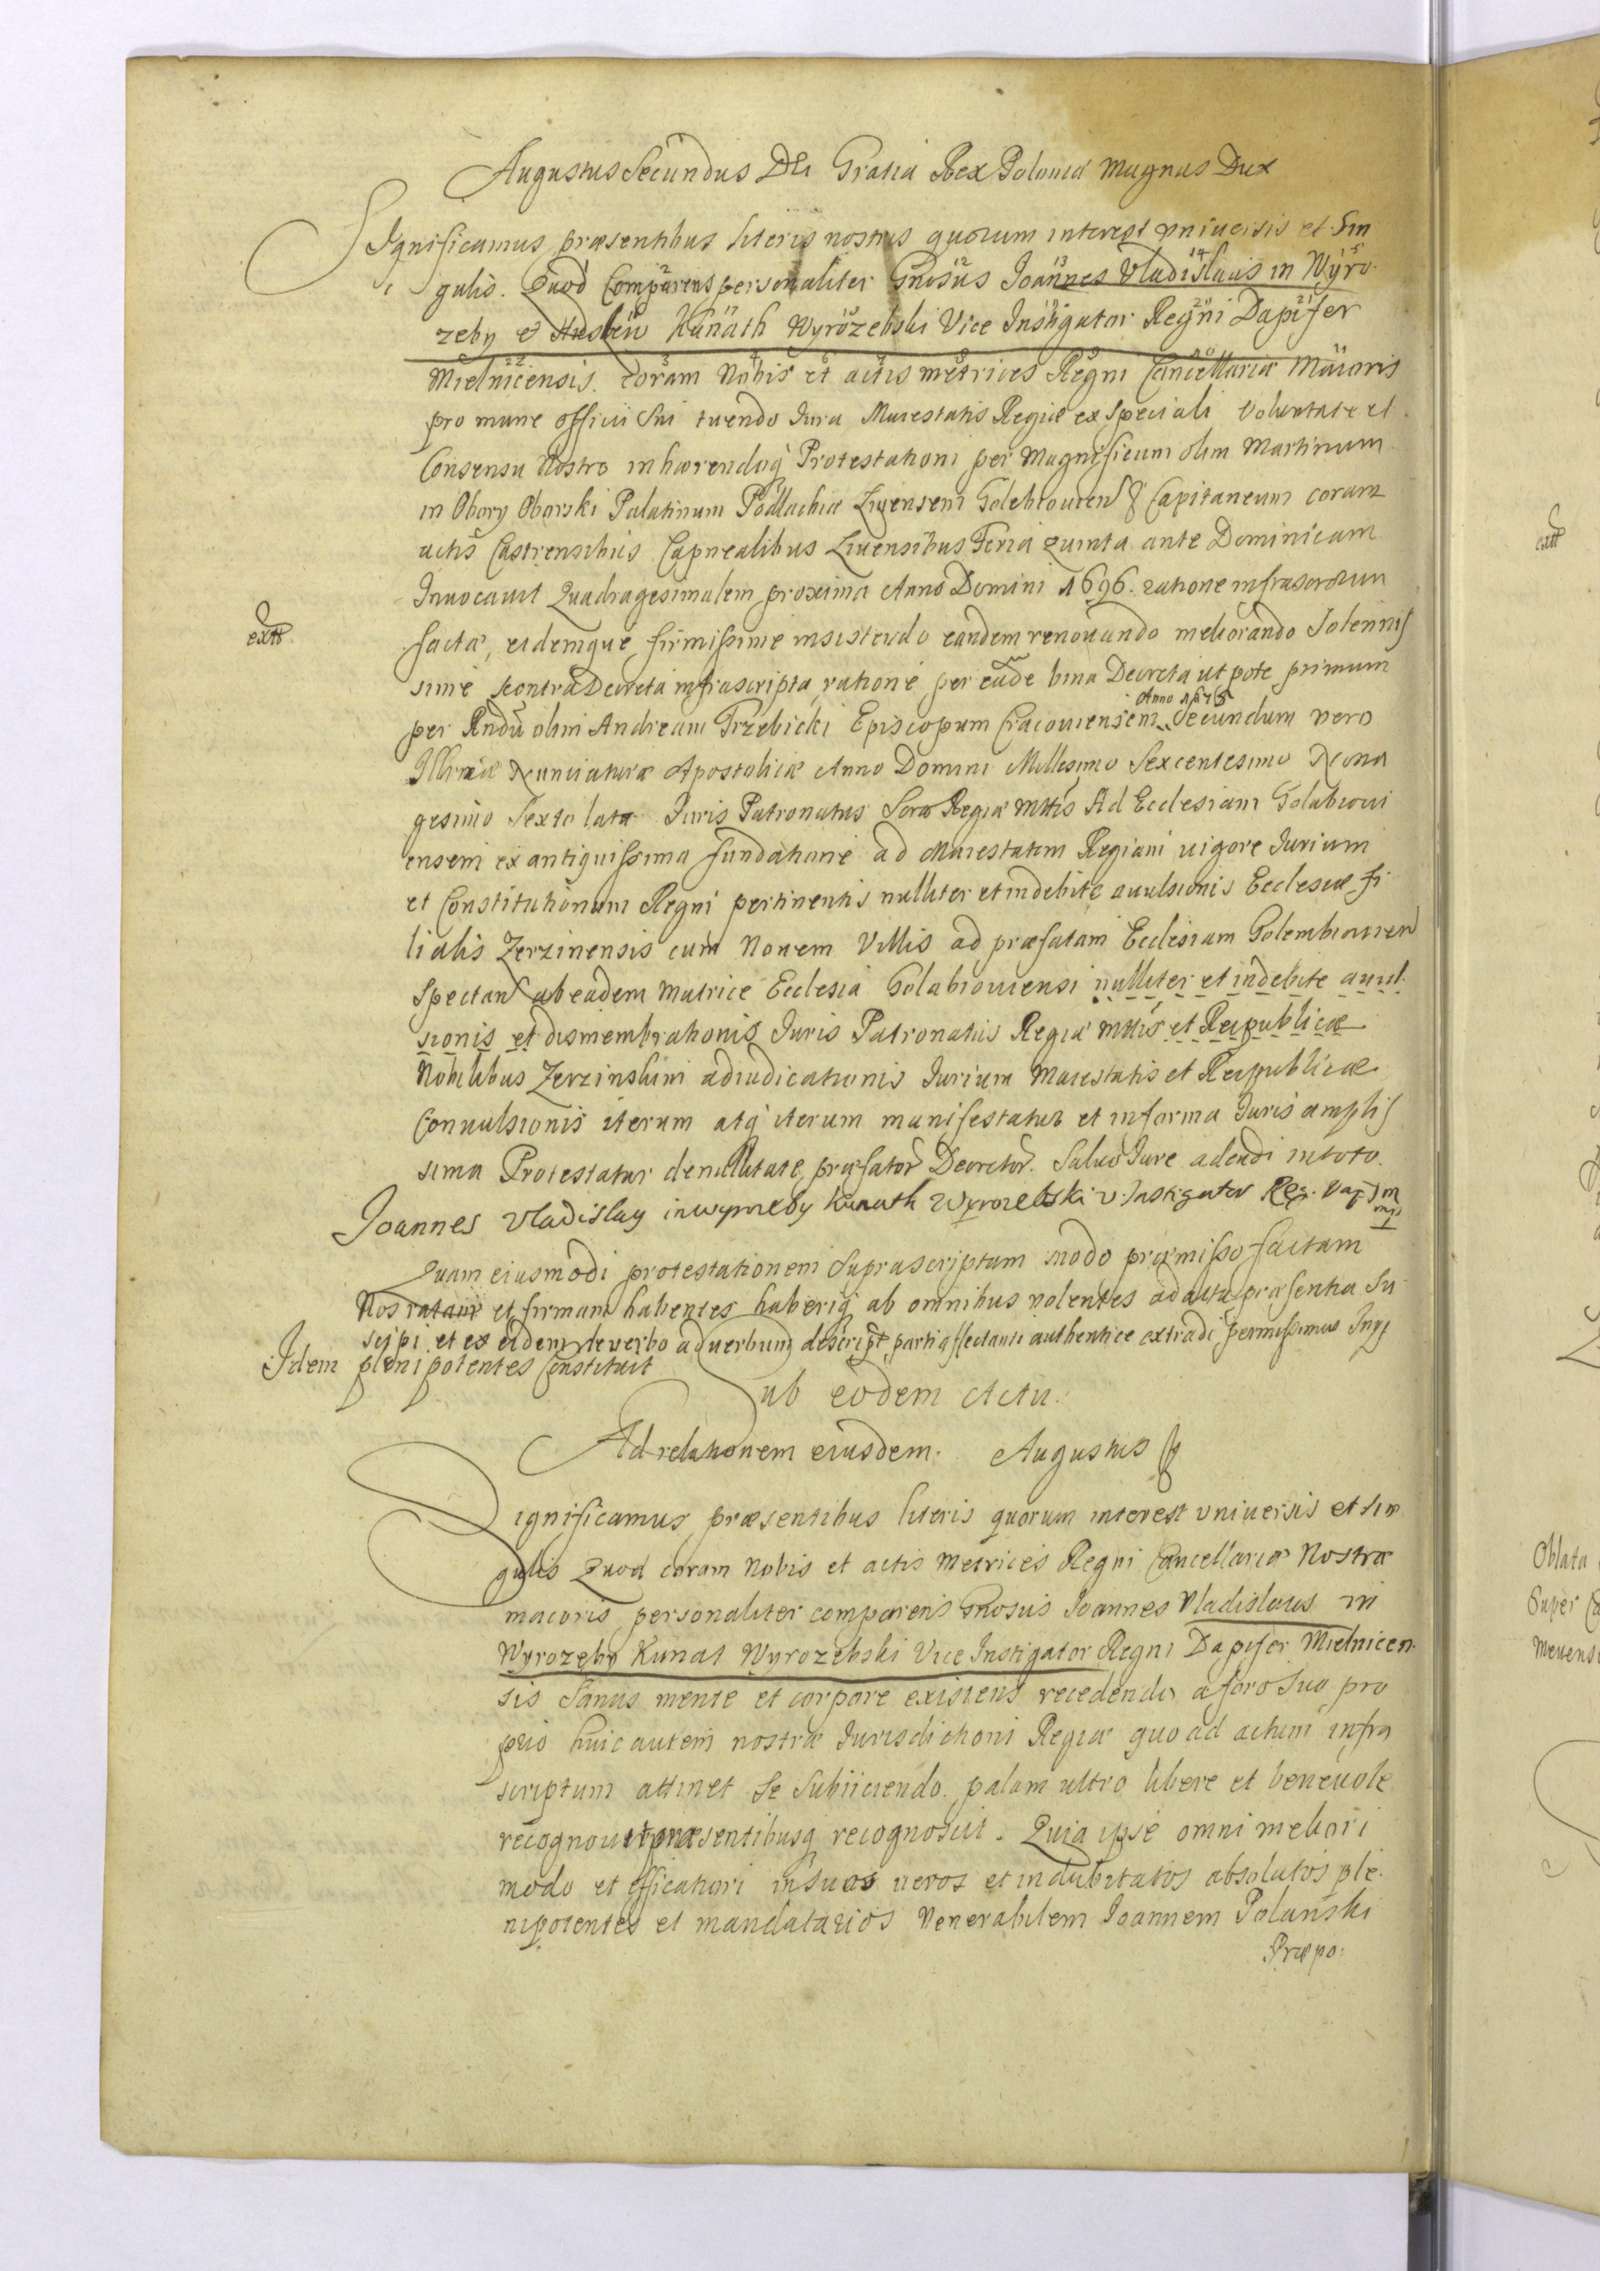 Augustus Secundus Dei Gratia Rex Poloniæ Magnus Dux
Significamus præsentibus literis nostris quorum interest vniuersis et Sin
gulis. Quod Comparens personaliter Gnosus Joannes Vladislaus in Wyro-
zeby et Kunath Wyrozebski Vice Instigator Regni Dapifer
Mielnicensis. coram Nobis et actis metrices Regni Cancellariæ Maioris
pro mune officii Sui tuendo Jura Maiestatis Regiæ ex speciali Voluntate et
Consensu Nostro inhærendoq Protestationi per Magnificum olim Martinum
in Obory Oborski Palatinum Podlachiæ Liuensem Golebiouien & Capitaneum coram
actis Castrensibus Capnealibus Liuensibus Feria quinta ante Dominicam
Inuocauit Quadragesimalem proxima Anno Domini 1696. ratione infrascriptorum
extt.
facta, eidemque firmissime insistendo eandem renouando meliorando Solennis
sime contra Decreta infrascripta ratione per eade bina Decreta ut pote primum
Anno 1678
per Rndu olim Andream Trzebicki Episcopum Cracouiensem Secundum vero
Illrmæ Nunciaturæ Apostolicæ Anno Domini Millesimo Sexcentesimo Nona
gesimo Sexto lata Juris Patronatus Sacræ Regiæ Mttis Ad Ecclesiam Golabioui
ensem ex antiquissima fundatione ad Maiestatem Regiam uigore Jurium
et Constitutionum Regni pertinentis nulliter et indebite auulsionis Ecclesiæ fi
lialis Zerzinensis cum Nouem Villis ad præfatam Ecclesiam Golembiouien
Spectan ab eadem Matrice Ecclesia Golabiouiensi nulliter et indebite auul-
sionis et dismembrationis Juris Patronatus Regiæ Mttis et Reipublicæ
Nobilibus Zerzinskim adiudicationis Jurium Maiestatis et Reipublicæ
Conuulsionis iterum atq iterum manifestatur et in forma Juris amplis
sima Protestatur de nullitate præfator Decretor. Saluo Jure adeudi in toto.
Joannes Vladislaq in wyrozeby Kunath Wyrozebski v: Instigator Reg. Dap: M
mp
Quam eiusmodi protestationem supra scriptam modo præmisso factam
Nos ratam et firmam habentes haberiq ab omnibus volentes ad acta præsentia Su
scipi et ex eidem de verbo ad verbum descript parti affectanti authentice extradi permissimus
Idem plenipotentes constituit
Sub eodem Actu.
Ad relationem eiusdem. Augustus
Significamus præsentibus literis quorum interest vniuersis et sin
gulis Quod coram Nobis et actis Metrices Regni Cancellariæ Nostræ
maioris personaliter comparens Gnosus Joannes Vladislaus in
Wyrozęby Kunat Wyrozebski Vice Instigator Regni Dapifer Mielnicen-
sis Sanus mente et corpore existens recedendo a foro suo pro
prio huic autem nostræ Jurisdictioni Regiæ quo ad actum infra
scriptum attinet Se Subiiciendo palam ultro libere et beneuole
recognouit præsentibusq recognoscit. Quia ipse omni meliori
modo et efficatiori in suos veros et indubitatos absolutos ple-
nipotentes et mandatarios Venerabilem Joannem Polański
Præpo:
extt
Oblata
Super
Meuens